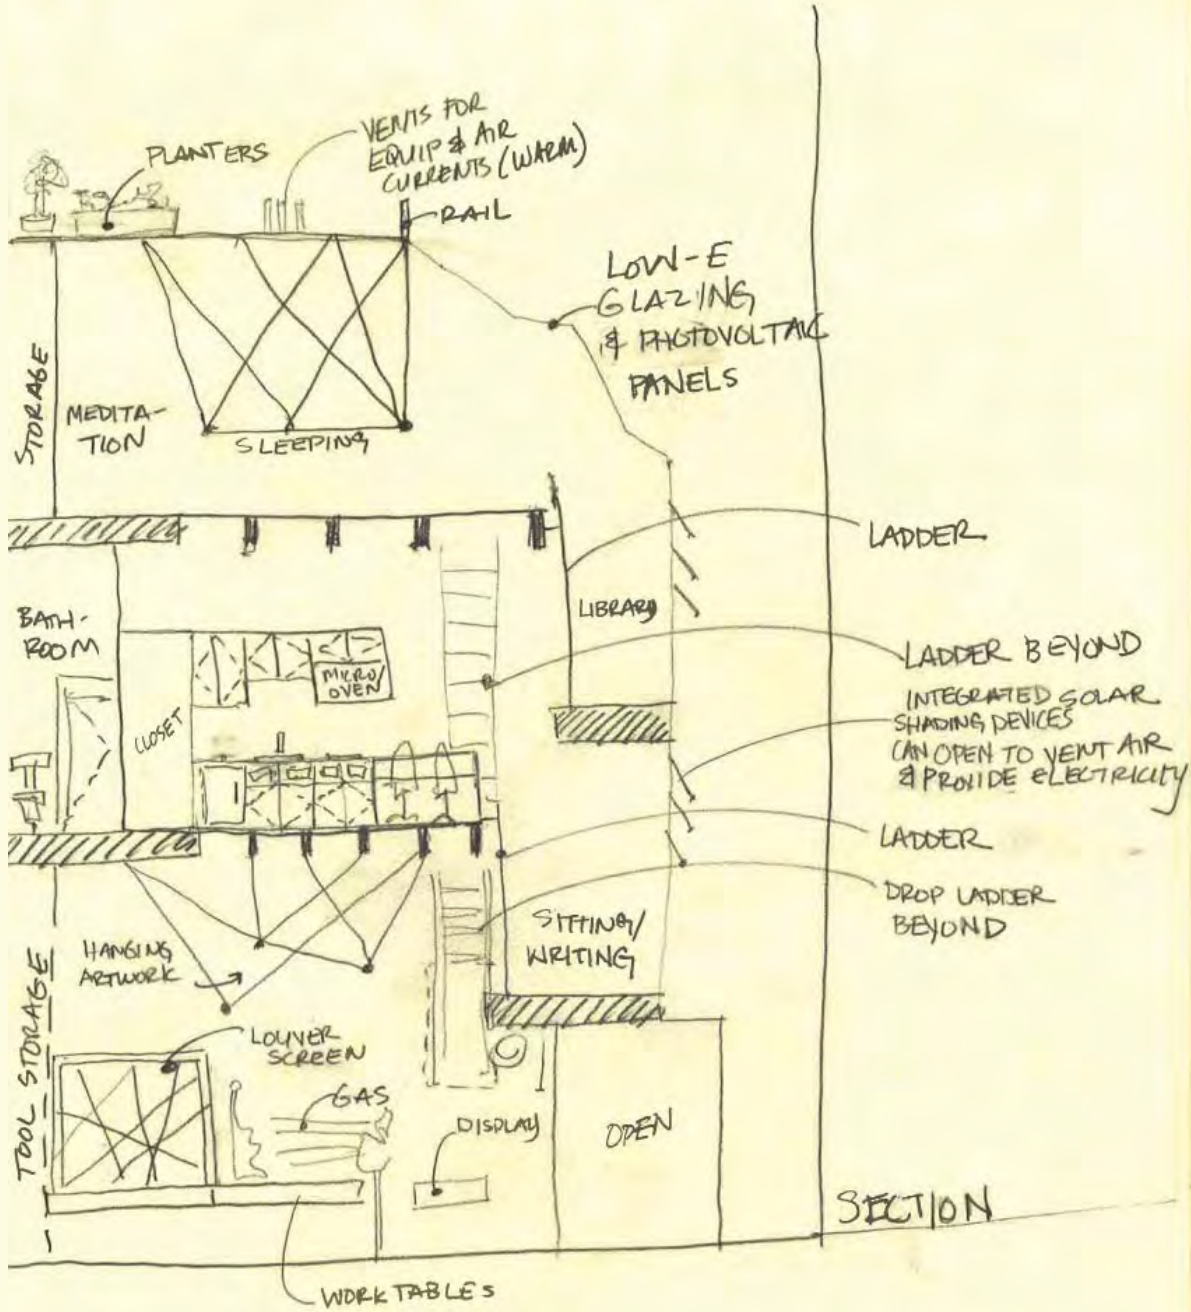 VENTS FOR
EQUIP & AIR
CURRENTS (WARM)
PLANTERS
RAIL
LOW-E
GLAZING
& PHOTOVOLTAIC
PANELS
STORAGE
MEDITA-
TION
SLEEPING
LADDER
LIBRARY
BATH-
ROOM
MICRO/
OVEN
CLOSET
LADDER BEYOND
INTEGRATED SOLAR
SHADING DEVICES
CAN OPEN TO VENT AIR
& PROVIDE ELECTRICITY
LADDER
DROP LADDER
BEYOND
SITTING/
WRITING
HANGING
ARTWORK
TOOL STORAGE
LOUVER
SCREEN
GAS
DISPLAY
OPEN
SECTION
WORK TABLES